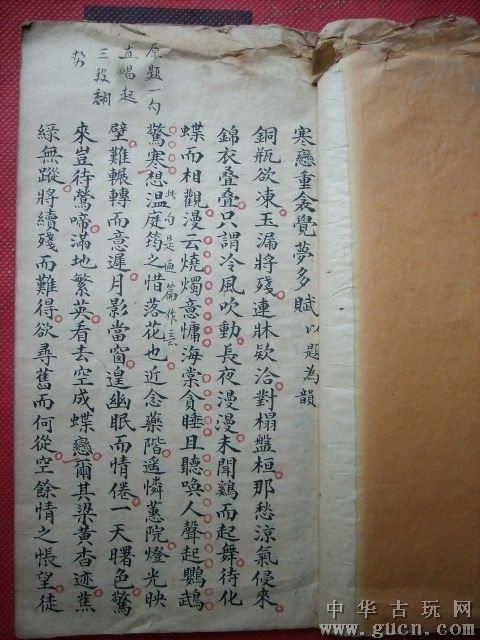 寒戀重衾覺夢多賦 以題為韻
銅瓶欲凍玉漏將殘連牀欵洽對榻盤桓那愁涼氣侵來
錦衣叠叠只謂冷風吹動長夜漫漫未聞鷄而起舞待化
蝶而相觀漫云燒燭意慵海棠貪睡且聽喚人聲起鸚鵡
此句是通篇作
驚寒想溫庭筠之惜落花也近念藥階遙憐蕙院燈光映
壁難輾轉而意遲月影當窗遑幽眠而情倦一天曙色驚
來豈待鶯啼滿地繁英看去空成蝶戀爾其梁黃杳迹蕉
綠無蹤將續殘而難得欲尋舊而何從空餘情之悵望徒
原題一句
直唱起
三段翻
势
中华古玩网
www.gucn.com